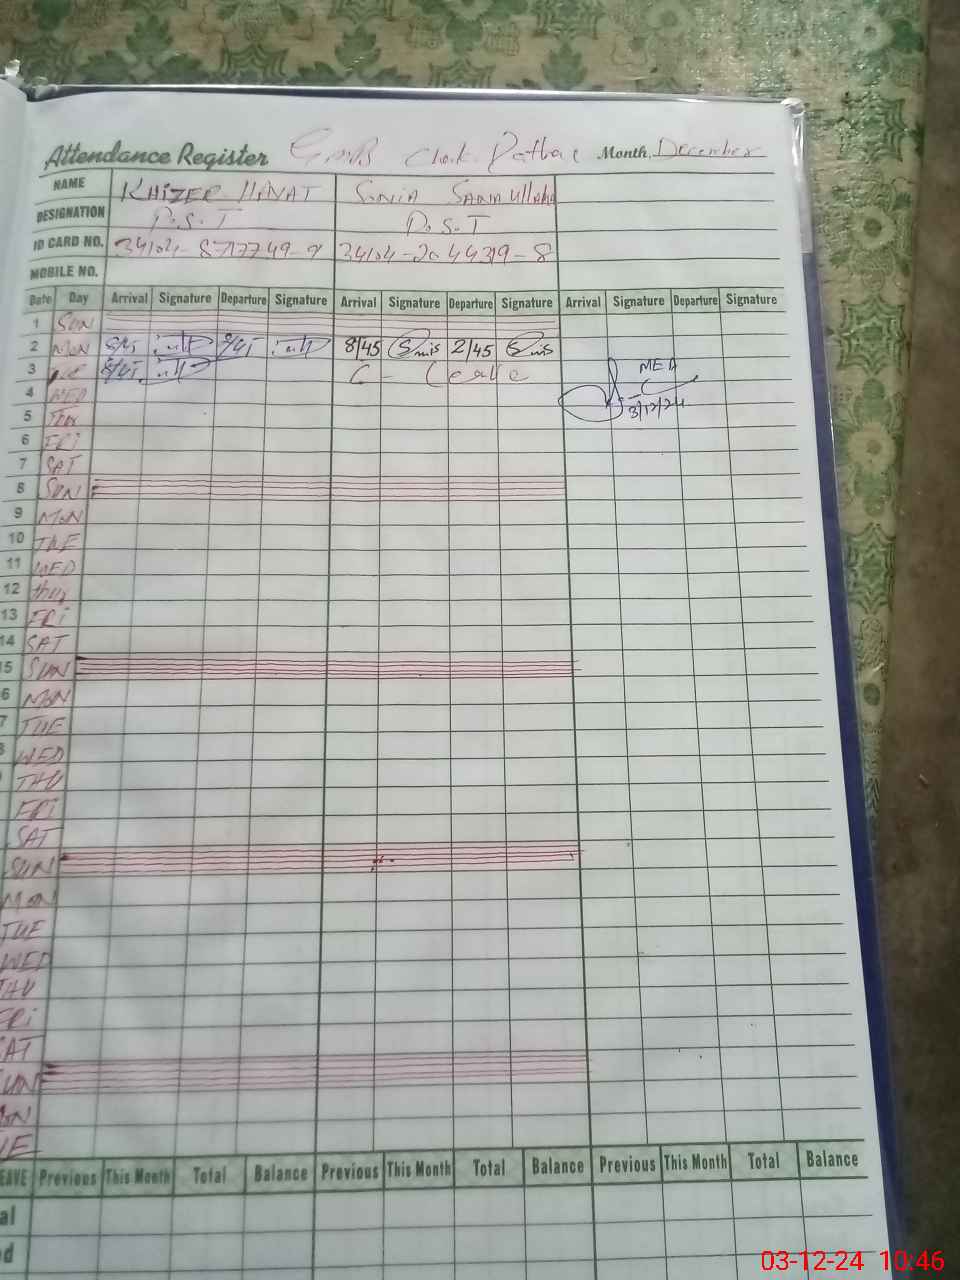 Attendance Register Month, December
NAME KHIZER HAYAT SONIA
DESIGNATION P.S.T P.S.T
ID CARD NO. 34104- 34104-2044319-8
MOBILE NO.
Date Day Arrival Signature Departure Signature Arrival Signature Departure Signature Arrival Signature Departure Signature
1 SUN
2 MON 8/45 8/45 2/45
3 8/45 C - Leave MEA
4 WED 3/12/24
5 Thu
6 FRI
7 SAT
8 SUN
9 MON
10 TUE
11 WED
12 thu
13 FRI
14 SAT
5 SUN
6 MON
7 TUE
WED
THU
FRI
SAT
SUN
MON
TUE
WED
THU
FRI
SAT
SUN
EAVE Previous This Month Total Balance Previous This Month Total Balance Previous This Month Total Balance
al
d
03-12-24 10:46